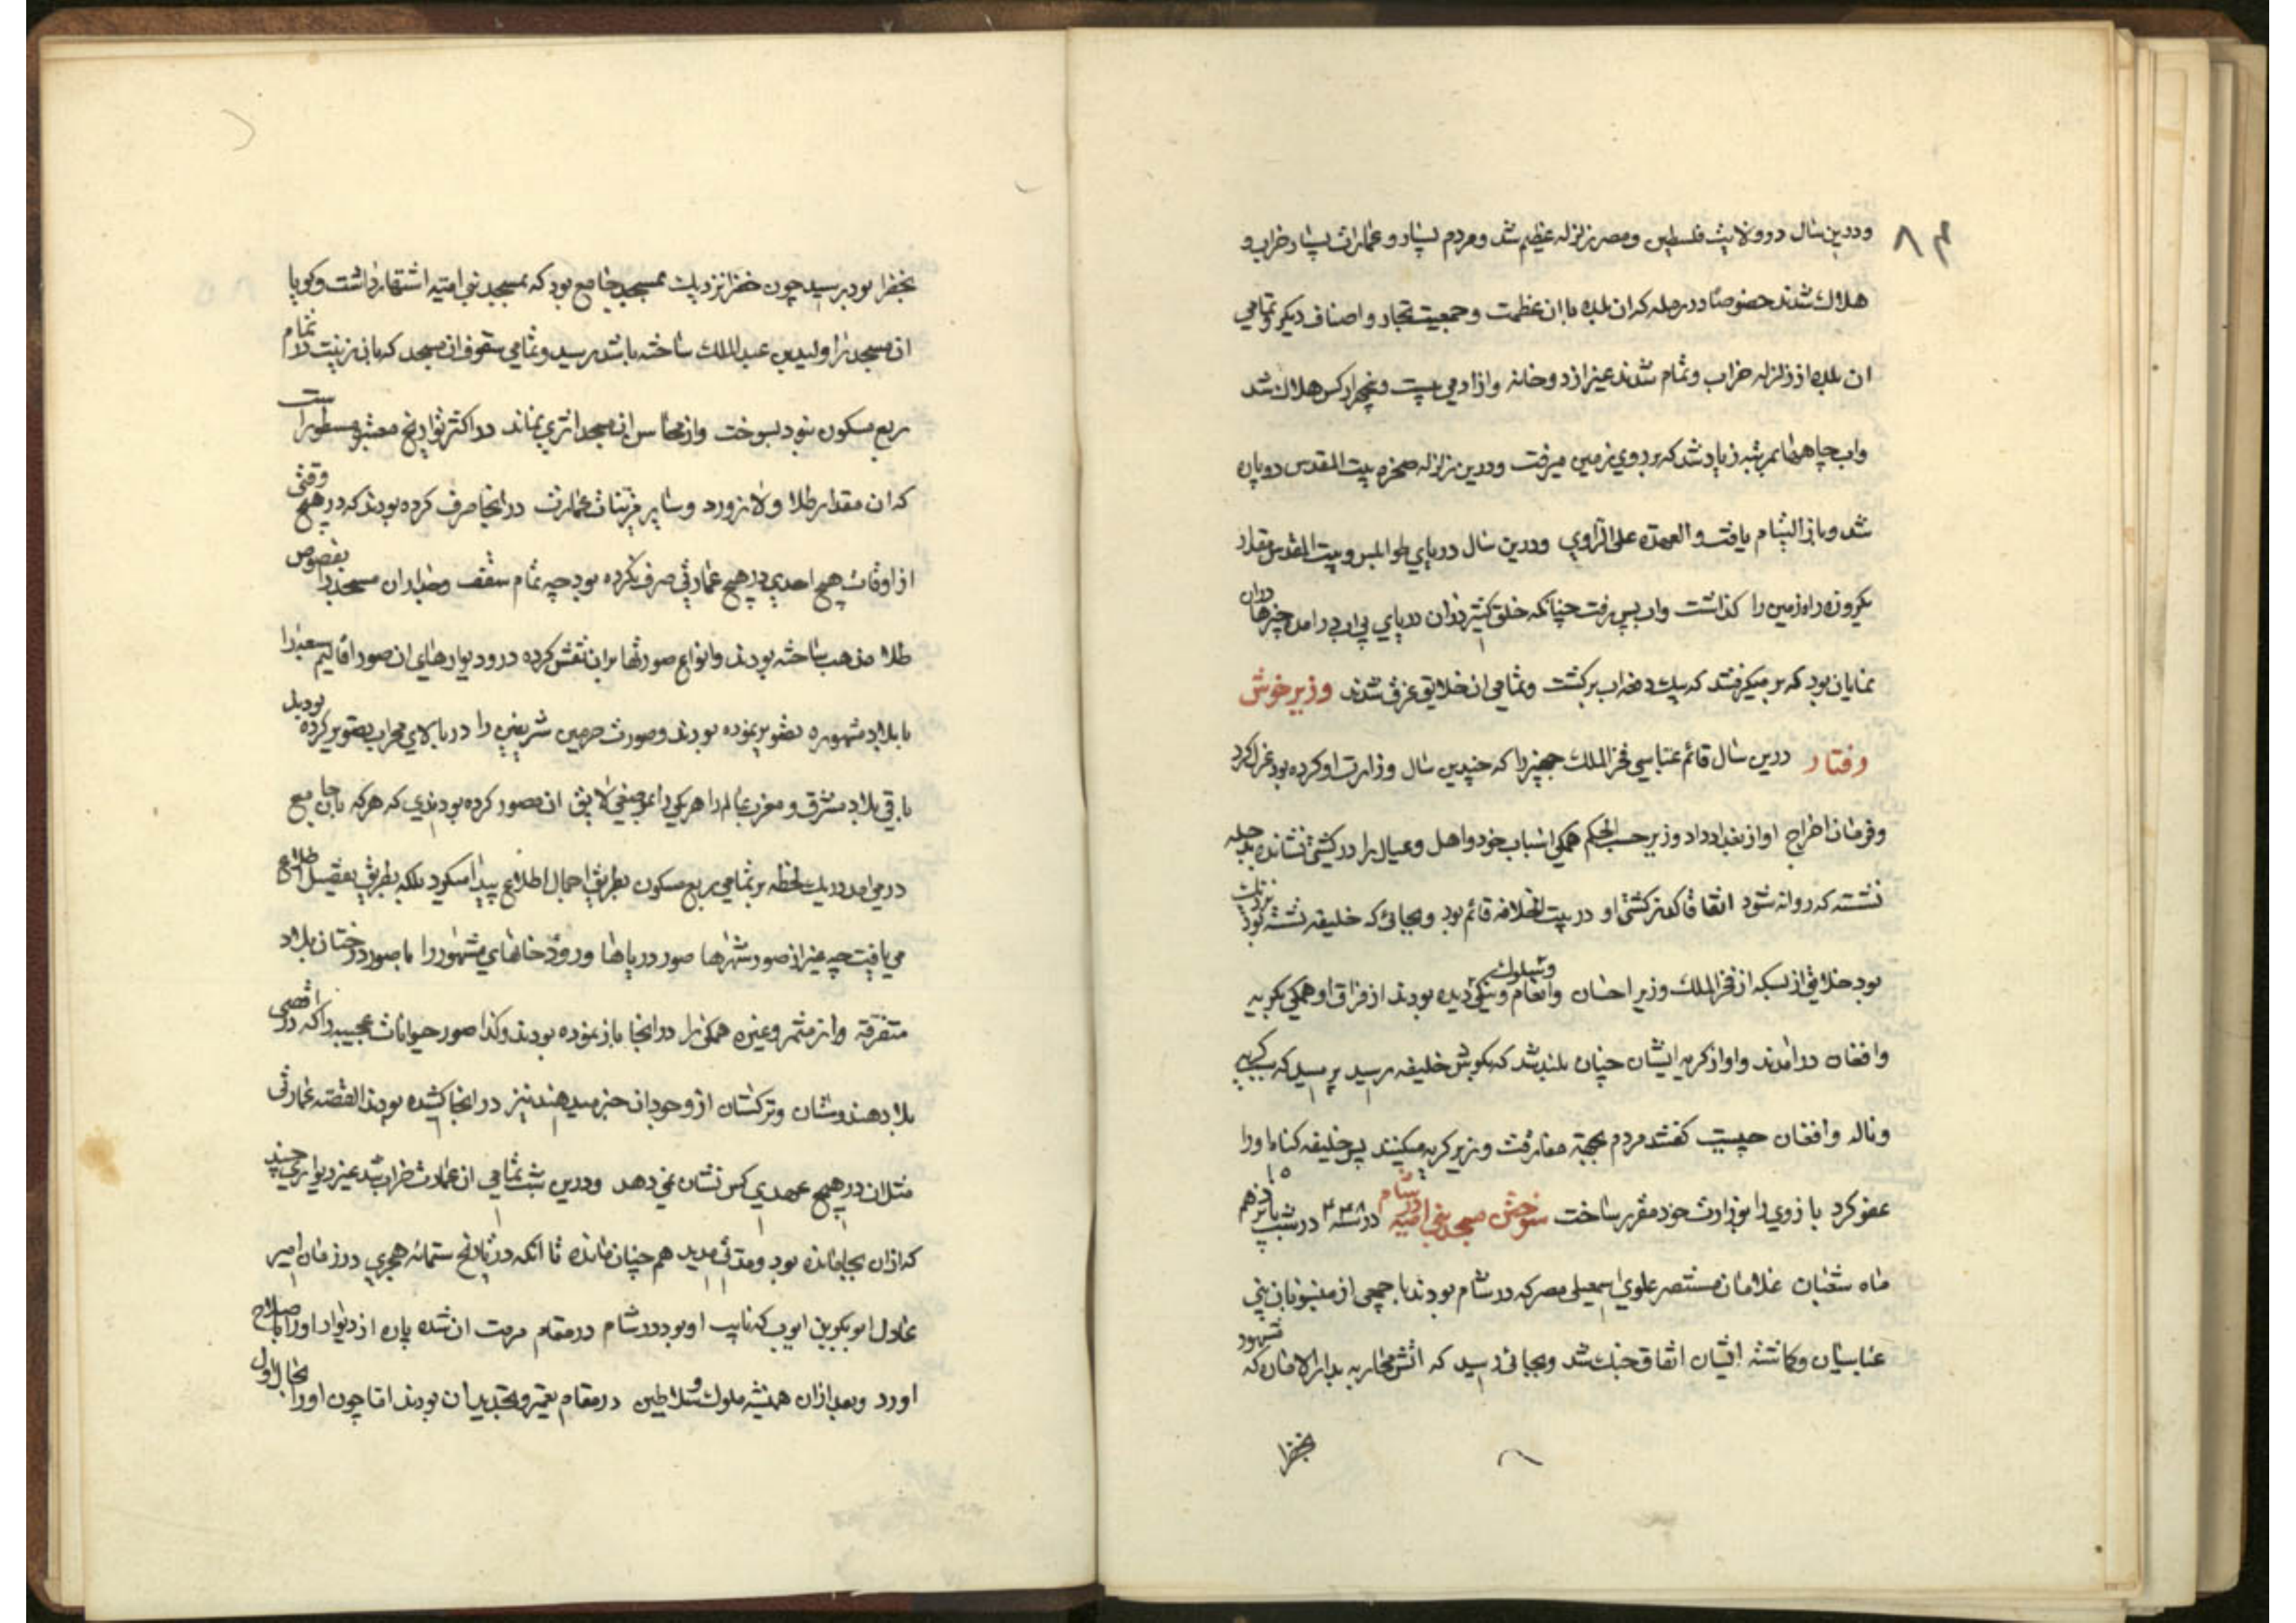 ۸۴
ودرین سال در ولایت فلسطین ومصر زلزله عظیم شد ومردم بسیار وعمارات بسیار خراب و
هلاک شدند خصوصًا در رمله که ان بلده با ان عظمت وجمعیت تجار واصناف دیکر وتمامی
ان بلده از زلزله خراب وتمام شدند غیر از دو خانه واز ادمی بیست وپنجهزار کس هلاک شد
واب چاهها بمرتبه زیاد شد که بر روی زمین میرفت ودرین زلزله صخره بیت المقدس دو پاره
شد وباز التیام یافت والعهدة علی الراوی ودرین سال دریای طرابلس وبیت المقدس مقدار
یکروزه راه زمین را کذاشت واب پس رفت چنانکه خلق کثیر در ان دریای بی اب در امدن چیزها دران
نمایان بود که بر میکرفتند که بیک دفعه اب برکشت وتمامی ان خلایق غرق شدند وزیر خوش
رفتار درین سال قائم عباسی فخر الملک جهیر را که چندین سال وزارت او کرده بود عزل کرد
وفرمان اخراج او از بغداد داد وزیر حسب الحکم همکی اسباب خود واهل وعیال را در کشتی نشانده بدجله
نشسته که روانه شود اتفاقا کذر کشتی او در بیت الخلافه قائم بود وبجائی که خلیفه نشسته بود نزدیک
بود خلایق از بسکه از فخر الملک وزیر احسان وانعام وسلوک ونیکی دیده بودند از فراق او همکی بکریه
وافغان در امدند واواز کریه ایشان چنان بلند شد که بکوش خلیفه رسید پرسید که سبب کریه
وناله وافغان چیست کفتند مردم بجهة مفارقت وزیر کریه میکنند پس خلیفه کناه او را
عفو کرد باز وی را بوزارت خود مقرر ساخت سوختن مسجد بنی امیه در شام در سنه ۴۴۸ در شب پانزدهم ۱۵
ماه شعبان غلامان مستنصر علوی اسمعیلی مصر که در شام بودند با جمعی از منسوبان بنی
عباسیان وکماشته ایشان اتفاق جنک شد وبجائی رسید که اتش محاربه بدار الامان که مشهور
بخضرا
بخضرا بود رسید چون خضرا نزدیک بمسجد جامع بود که بمسجد بنی امیه اشتهار داشت وکویا
ان مسجد را ولید بن عبد الملک ساخته باشد رسید وتمامی سقوف ان مسجد که بان زینت در تمام
ربع مسکون نبود بسوخت واز محاسن ان مسجد اثری نماند در اکثر تواریخ معتبر مسطور است
که ان مقدار طلا ولاژورد وسایر مزینات عمارت در انجا صرف کرده بودند که در هیچ وقتی
از اوقات هیچ احدی در هیچ عمارتی صرف نکرده بود چه تمام سقف وجدار ان مسجد را بفصوص
طلا مذهب ساخته بودند وانواع صورتها بران نقش کرده در ودیوارهای ان صور اقالیم سبعه را
با بلاد مشهوره تصویر نموده بودند وصورت حرمین شریفین را در بالای محراب تصویر کرده بود بل
باقی بلاد مشرق ومغرب عالم را هر یکی را بموضعی لایق ان مصور کرده بودندی که هر که بان جامع
در می امد در یک لحظه بر تمامی ربع مسکون بطریق اجمال اطلاع پیدا میکرد بلکه بطریق تفصیل اطلاع
می یافت چه غیر از صور شهرها صور دریاها ورودخانهای مشهور را با صور درختان بلاد
متفرقه واز مثمر وغیره همکی را در انجا باز نموده بودند وکذا صور حیوانات عجیبه را که در اقصی
بلاد هندوستان وترکستان از وجود ان خبر میدهند نیز در انجا کشیده بودند القصه عمارتی
مثل ان در هیچ عهدی کس نشان نمی دهد ودرین شب تمامی ان عمارت خراب شد غیر دیواری چند
که ازان بجا مانده بود ومدتی مدید هم چنان مانده تا انکه در تاریخ ستمائه هجری در زمان امیر
عادل ابو بکر بن ایوب که نایب او بود در شام در مقام مرمت ان شده پاره از دیوار او را باصلاح
اورد وبعد ازان همیشه ملوک وسلاطین در مقام تعمیر وتجدید ان بودند اما چون او را بحال اول